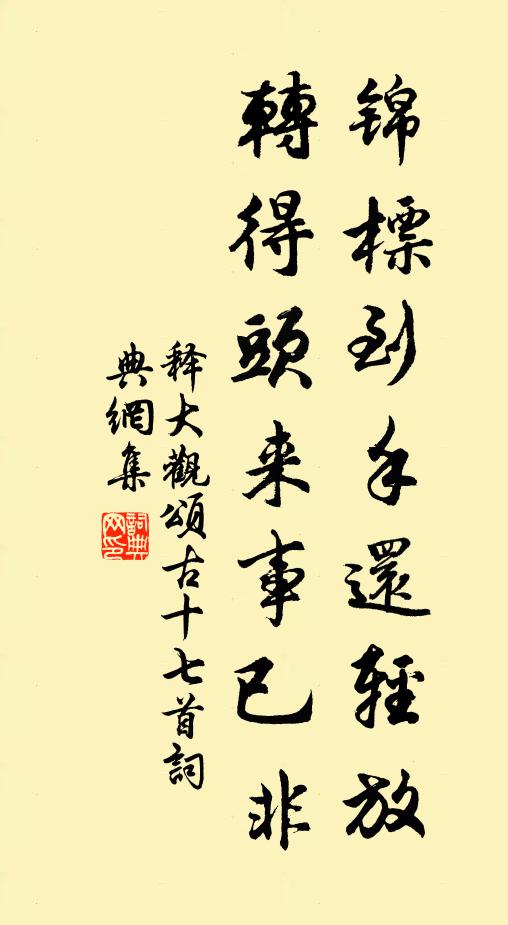 锦標到手還輕放
轉得頭来事已非
释大觀頌古十七首詞
典網集
詞典
网印